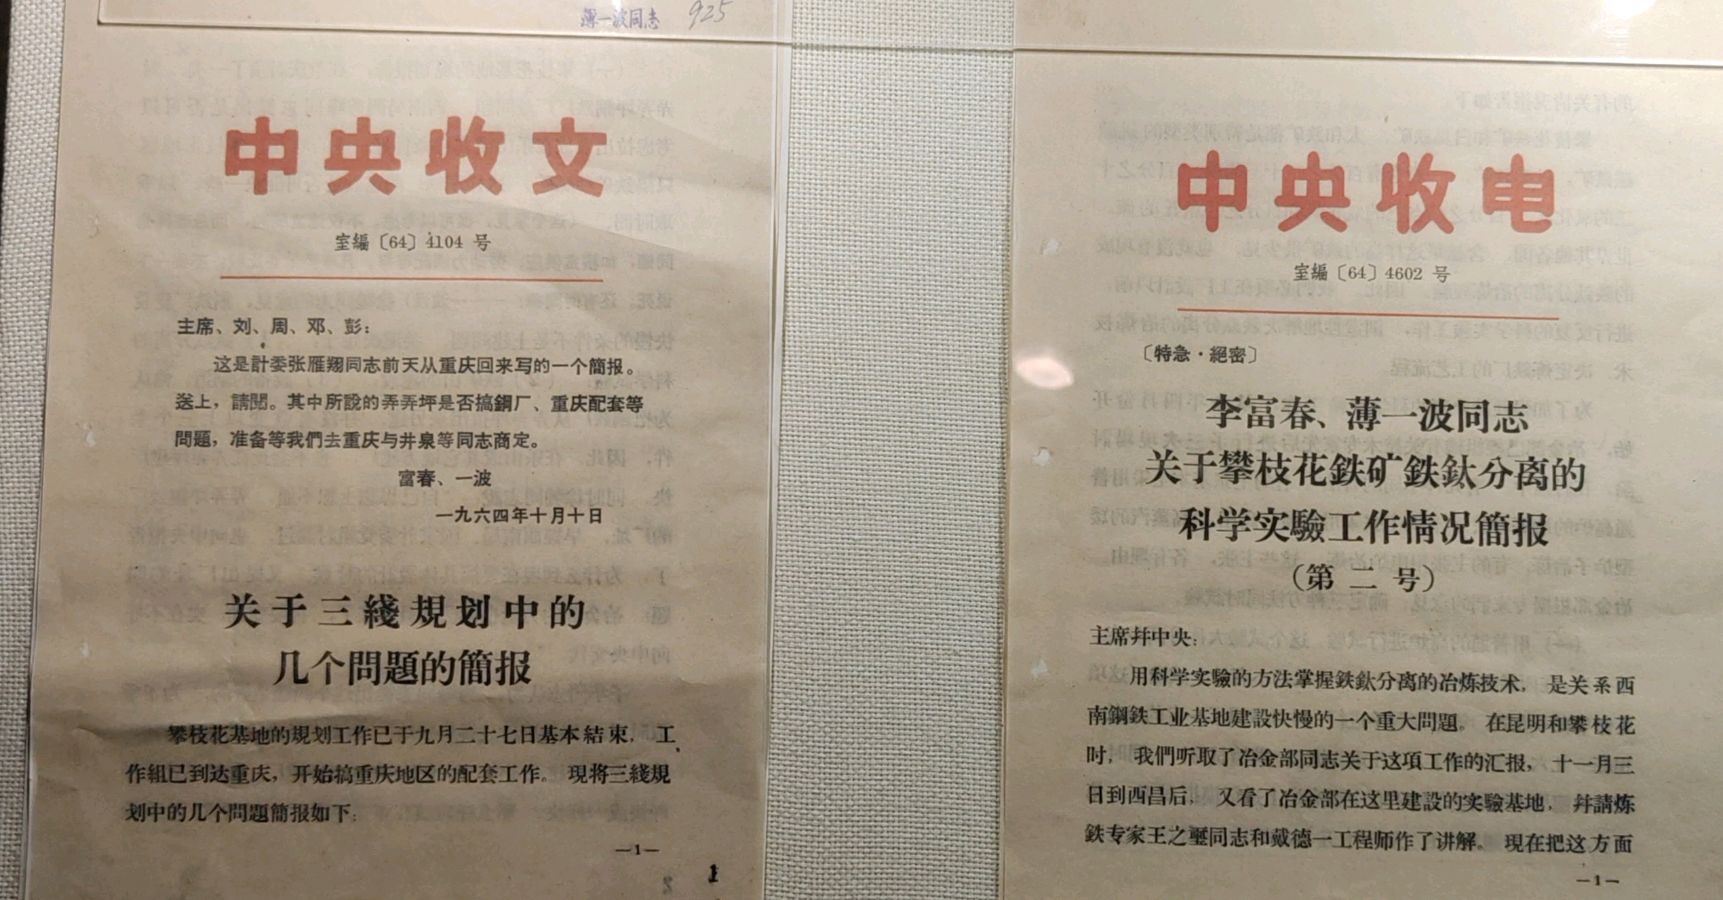 薄一波同志 925
中央收文
室編〔64〕4104 号
主席、刘、周、邓、彭：
这是計委张雁翔同志前天从重庆回来写的一个簡报。
送上，請閱。其中所說的弄弄坪是否搞鋼厂、重庆配套等
問題，准备等我們去重庆与井泉等同志商定。
富春、一波
一九六四年十月十日
关于三綫規划中的
几个問題的簡报
攀枝花基地的規划工作已于九月二十七日基本結束，工
作組已到达重庆，开始搞重庆地区的配套工作。現将三綫規
划中的几个問題簡报如下：
—1—
1
中央收电
室編〔64〕4602 号
〔特急·絕密〕
李富春、薄一波同志
关于攀枝花鉄矿鉄鈦分离的
科学实驗工作情况簡报
（第二号）
主席幷中央：
用科学实驗的方法掌握鉄鈦分离的冶炼技术，是关系西
南鋼鉄工业基地建設快慢的一个重大問題。在昆明和攀枝花
时，我們听取了冶金部同志关于这項工作的汇报，十一月三
日到西昌后，又看了冶金部在这里建設的实驗基地，幷請炼
鉄专家王之璽同志和戴德一工程师作了讲解。現在把这方面
—1—